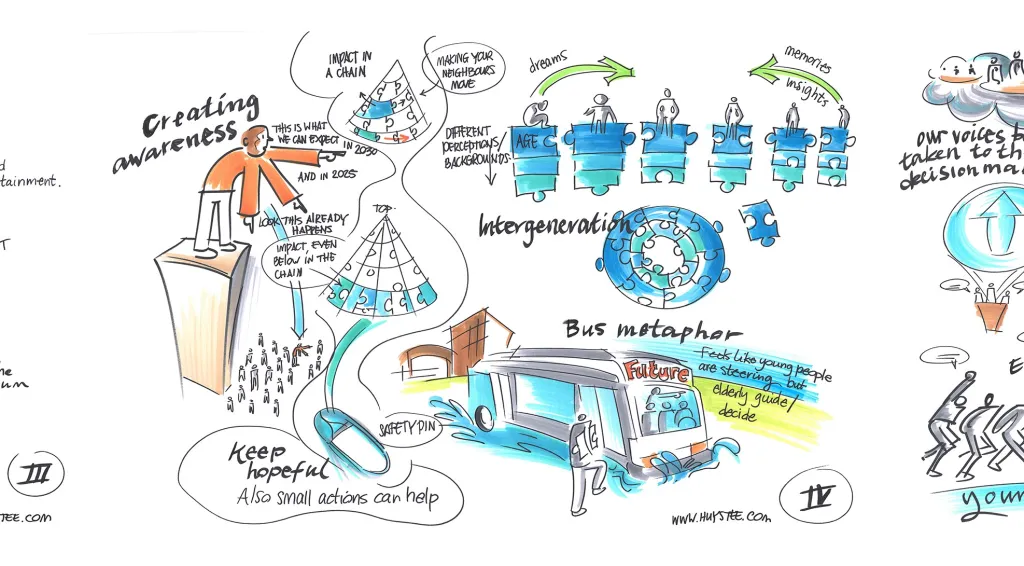 tainment.
III
TEE.COM
Creating
awareness
THIS IS WHAT
WE CAN EXPECT IN 2030
AND IN 2025
LOOK THIS ALREADY
HAPPENS
IMPACT, EVEN
BELOW IN THE
CHAIN
IMPACT IN
A CHAIN
MAKING YOUR
NEIGHBOURS
MOVE
TOP.
SAFETY PIN
Keep
hopeful
Also small actions can help
dreams
memories
insights
DIFFERENT
PERCEPTIONS/
BACKGROUNDS
AGE
Intergeneration
Bus metaphor
Feels like young people
are steering, but
elderly guide/
decide
Future
WWW.HUYSTEE.COM
IV
our voices
taken to th
decision ma
E
youn